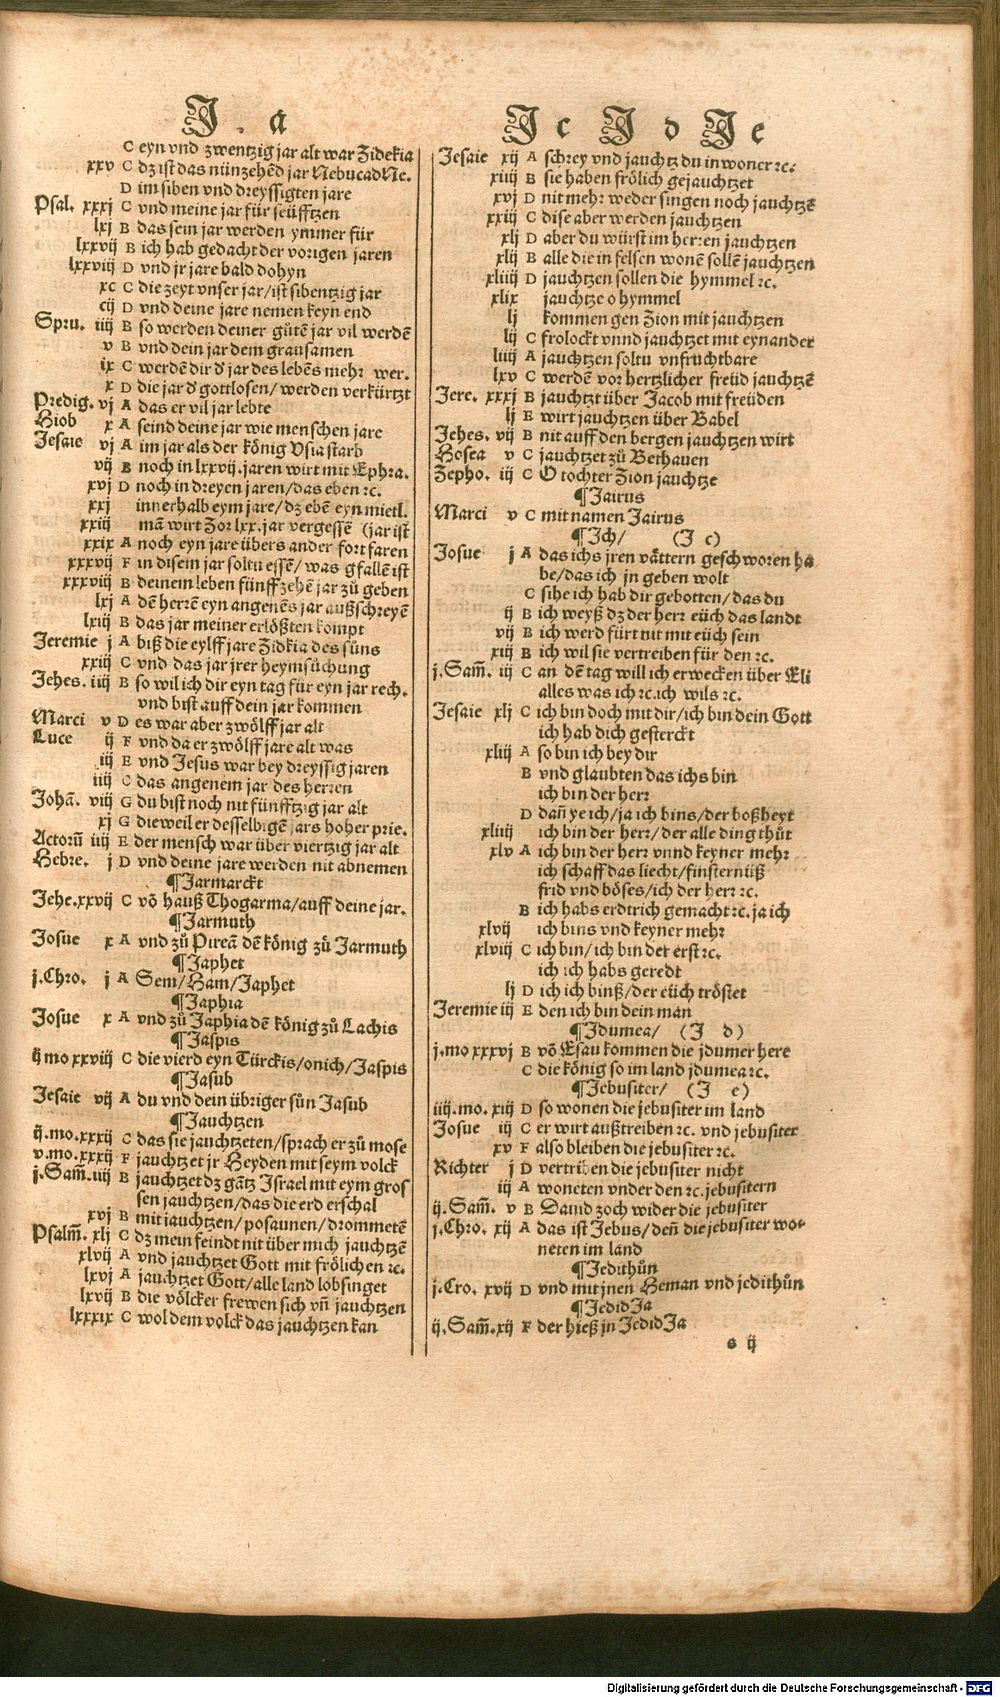 J . a
C eyn vnd zwentzig jar alt war Zidekia
xxv C dz ist das nünzehēd jar NebucadNe.
D im siben vnd dreyssigten jare
Psal. xxxj C vnd meine jar für seüfftzen
lxj B das sein jar werden ymmer für
lxxvij B ich hab gedacht der vorigen jaren
lxxviij D vnd jr jare bald dohyn
xc C die zeyt vnser jar/ist sibentzig jar
cij D vnd deine jare nemen keyn end
Spru. iiij B so werden deiner gůtē jar vil werdē
v B vnd dein jar dem grausamen
ix C werdē dir ď jar des lebēs mehr wer.
x D die jar ď gottlosen/ werden verkürtzt
Predig. vj A das er vil jar lebte
Hiob x A seind deine jar wie menschen jare
Jesaie vj A im jar als der könig Vsia starb
vij B noch in lxxvij.jaren wirt mit Ephra.
xvj D noch in dreyen jaren/das eben ꝛc.
xxj innerhalb eym jare/dz ebē eyn mietl.
xxiij mā wirt Zor lxx.jar vergessē (jar ist
xxix A noch eyn jare übers ander fort faren
xxxvij F in disein jar soltu essē/ was gfallē ist
xxxviij B deinem leben fünffzehē jar zů geben
lxj A dē herrē eyn angenēs jar außschreyē
lxiij B das jar meiner erlößten kompt
Jeremie j A biß die eylff jare Zidkia des süns
xxiij C vnd das jar jrer heymsůchung
Jehes. iiij B so wil ich dir eyn tag für eyn jar rech.
vnd bist auff dein jar kommen
Marci v D es war aber zwölff jar alt
Luce ij F vnd da er zwölff jare alt was
iij E vnd Jesus war bey dreyssig jaren
iiij C das angenem jar des herren
Johā. viij G du bist noch nit fünfftzig jar alt
xj G dieweil er desselbigē jars hoher prie.
Actorū iiij E der mensch war über viertzig jar alt
Hebre. j D vnd deine jare werden nit abnemen
¶Jarmarckt
Jehe.xxvij C vō hauß Thogarma/auff deine jar.
¶Jarmuth
Josue x A vnd zů Pireā dē könig zů Jarmuth
¶Japhet
j.Chro. j A Sem/Ham/Japhet
¶Japhia
Josue x A vnd zů Japhia dē könig zů Lachis
¶Jaspis
ij mo xxviij C die vierd eyn Türckis/onich/Jaspis
¶Jasub
Jesaie vij A du vnd dein übriger sün Jasub
¶Jauchtzen
ij.mo.xxxij C das sie jauchtzeten/sprach er zů mose
v.mo.xxxij F jauchtzet jr Heyden mit seym volck
j.Sam̄.iiij B jauchtzet dz gātz Israel mit eym gros
sen jauchtzen/das die erd erschal
xvj B mit jauchtzen/posaunen/drommetē
Psalm̄. xlj C dz mein feindt nit über mich jauchtzē
xlvij A vnd jauchtzet Gott mit frölichen ꝛc.
lxvj A jauchtzet Gott/alle land lobsinget
lxvij B die völcker frewen sich vn̄ jauchtzen
lxxxix C wol dem volck das jauchtzen kan
J c J d J e
Jesaie xij A schrey vnd jauchtz du inwoner ꝛc.
xiiij B sie haben frölich gejauchtzet
xvj D nit mehr weder singen noch jauchtzē
xxiij C dise aber werden jauchtzen
xlj D aber du würst im herren jauchtzen
xlij B alle die in felsen wonē sollē jauchtzen
xliiij D jauchtzen sollen die hymmel ꝛc.
xlix jauchtze o hymmel
lj kommen gen Zion mit jauchtzen
lij C frolockt vnnd jauchtzet mit eynander
liiij A jauchtzen soltu vnfruchtbare
lxv C werdē vor hertzlicher freüd jauchtzē
Jere. xxxj B jauchtzt über Jacob mit freüden
lj E wirt jauchtzen über Babel
Jehes. vij B nit auff den bergen jauchtzen wirt
Hosea v C jauchtzet zů Bethauen
Zepho. iij C O tochter Zion jauchtze
¶Jairus
Marci v C mit namen Jairus
¶Jch/ (J c)
Josue j A das ichs jren vättern geschworen ha
be/das ich jn geben wolt
C sihe ich hab dir gebotten/das du
ij B ich weyß dz der herr eüch das landt
vij B ich werd fürt nit mit eüch sein
xiij B ich wil sie vertreiben für den ꝛc.
j.Sam̄. iij C an dē tag will ich erwecken über Eli
alles was ich ꝛc.ich wils ꝛc.
Jesaie xlj C ich bin doch mit dir/ich bin dein Gott
ich hab dich gesterckt
xliij A so bin ich bey dir
B vnd glaubten das ichs bin
ich bin der herr
D dan̄ ye ich/ja ich bins/der boßheyt
xliiij ich bin der herr/der alle ding thůt
xlv A ich bin der herr vnnd keyner mehr
ich schaff das liecht/finsternüß
frid vnd böses/ich der herr ꝛc.
B ich habs erdtrich gemacht ꝛc. ja ich
xlvij ich bins vnd keyner mehr
xlviij C ich bin/ich bin der erst ꝛc.
ich ich habs geredt
lj D ich ich binß/der eüch tröstet
Jeremie iij E den ich bin dein man
¶Jdumea/ (J d)
j.mo xxxvj B vō Esau kommen die jdumer here
C die könig so im land jdumea ꝛc.
¶Jebusiter/ (J e)
iiij.mo. xiij D so wonen die jebusiter im land
Josue iij C er wirt außtreiben ꝛc. vnd jebusiter
xv F also bleiben die jebusiter ꝛc.
Richter j D vertriben die jebusiter nicht
iij A woneten vnder den ꝛc.jebusitern
ij.Sam̄. v B Dauid zoch wider die jebusiter
j.Chro. xij A das ist Jebus/den̄ die jebusiter wo-
neten im land
¶Jedithün
j.Cro. xvij D vnd mit jnen Heman vnd jedithün
¶JedidJa
ij.Sam̄.xij F der hieß jn JedidJa
e ij
Digitalisierung gefördert durch die Deutsche Forschungsgemeinschaft - DFG